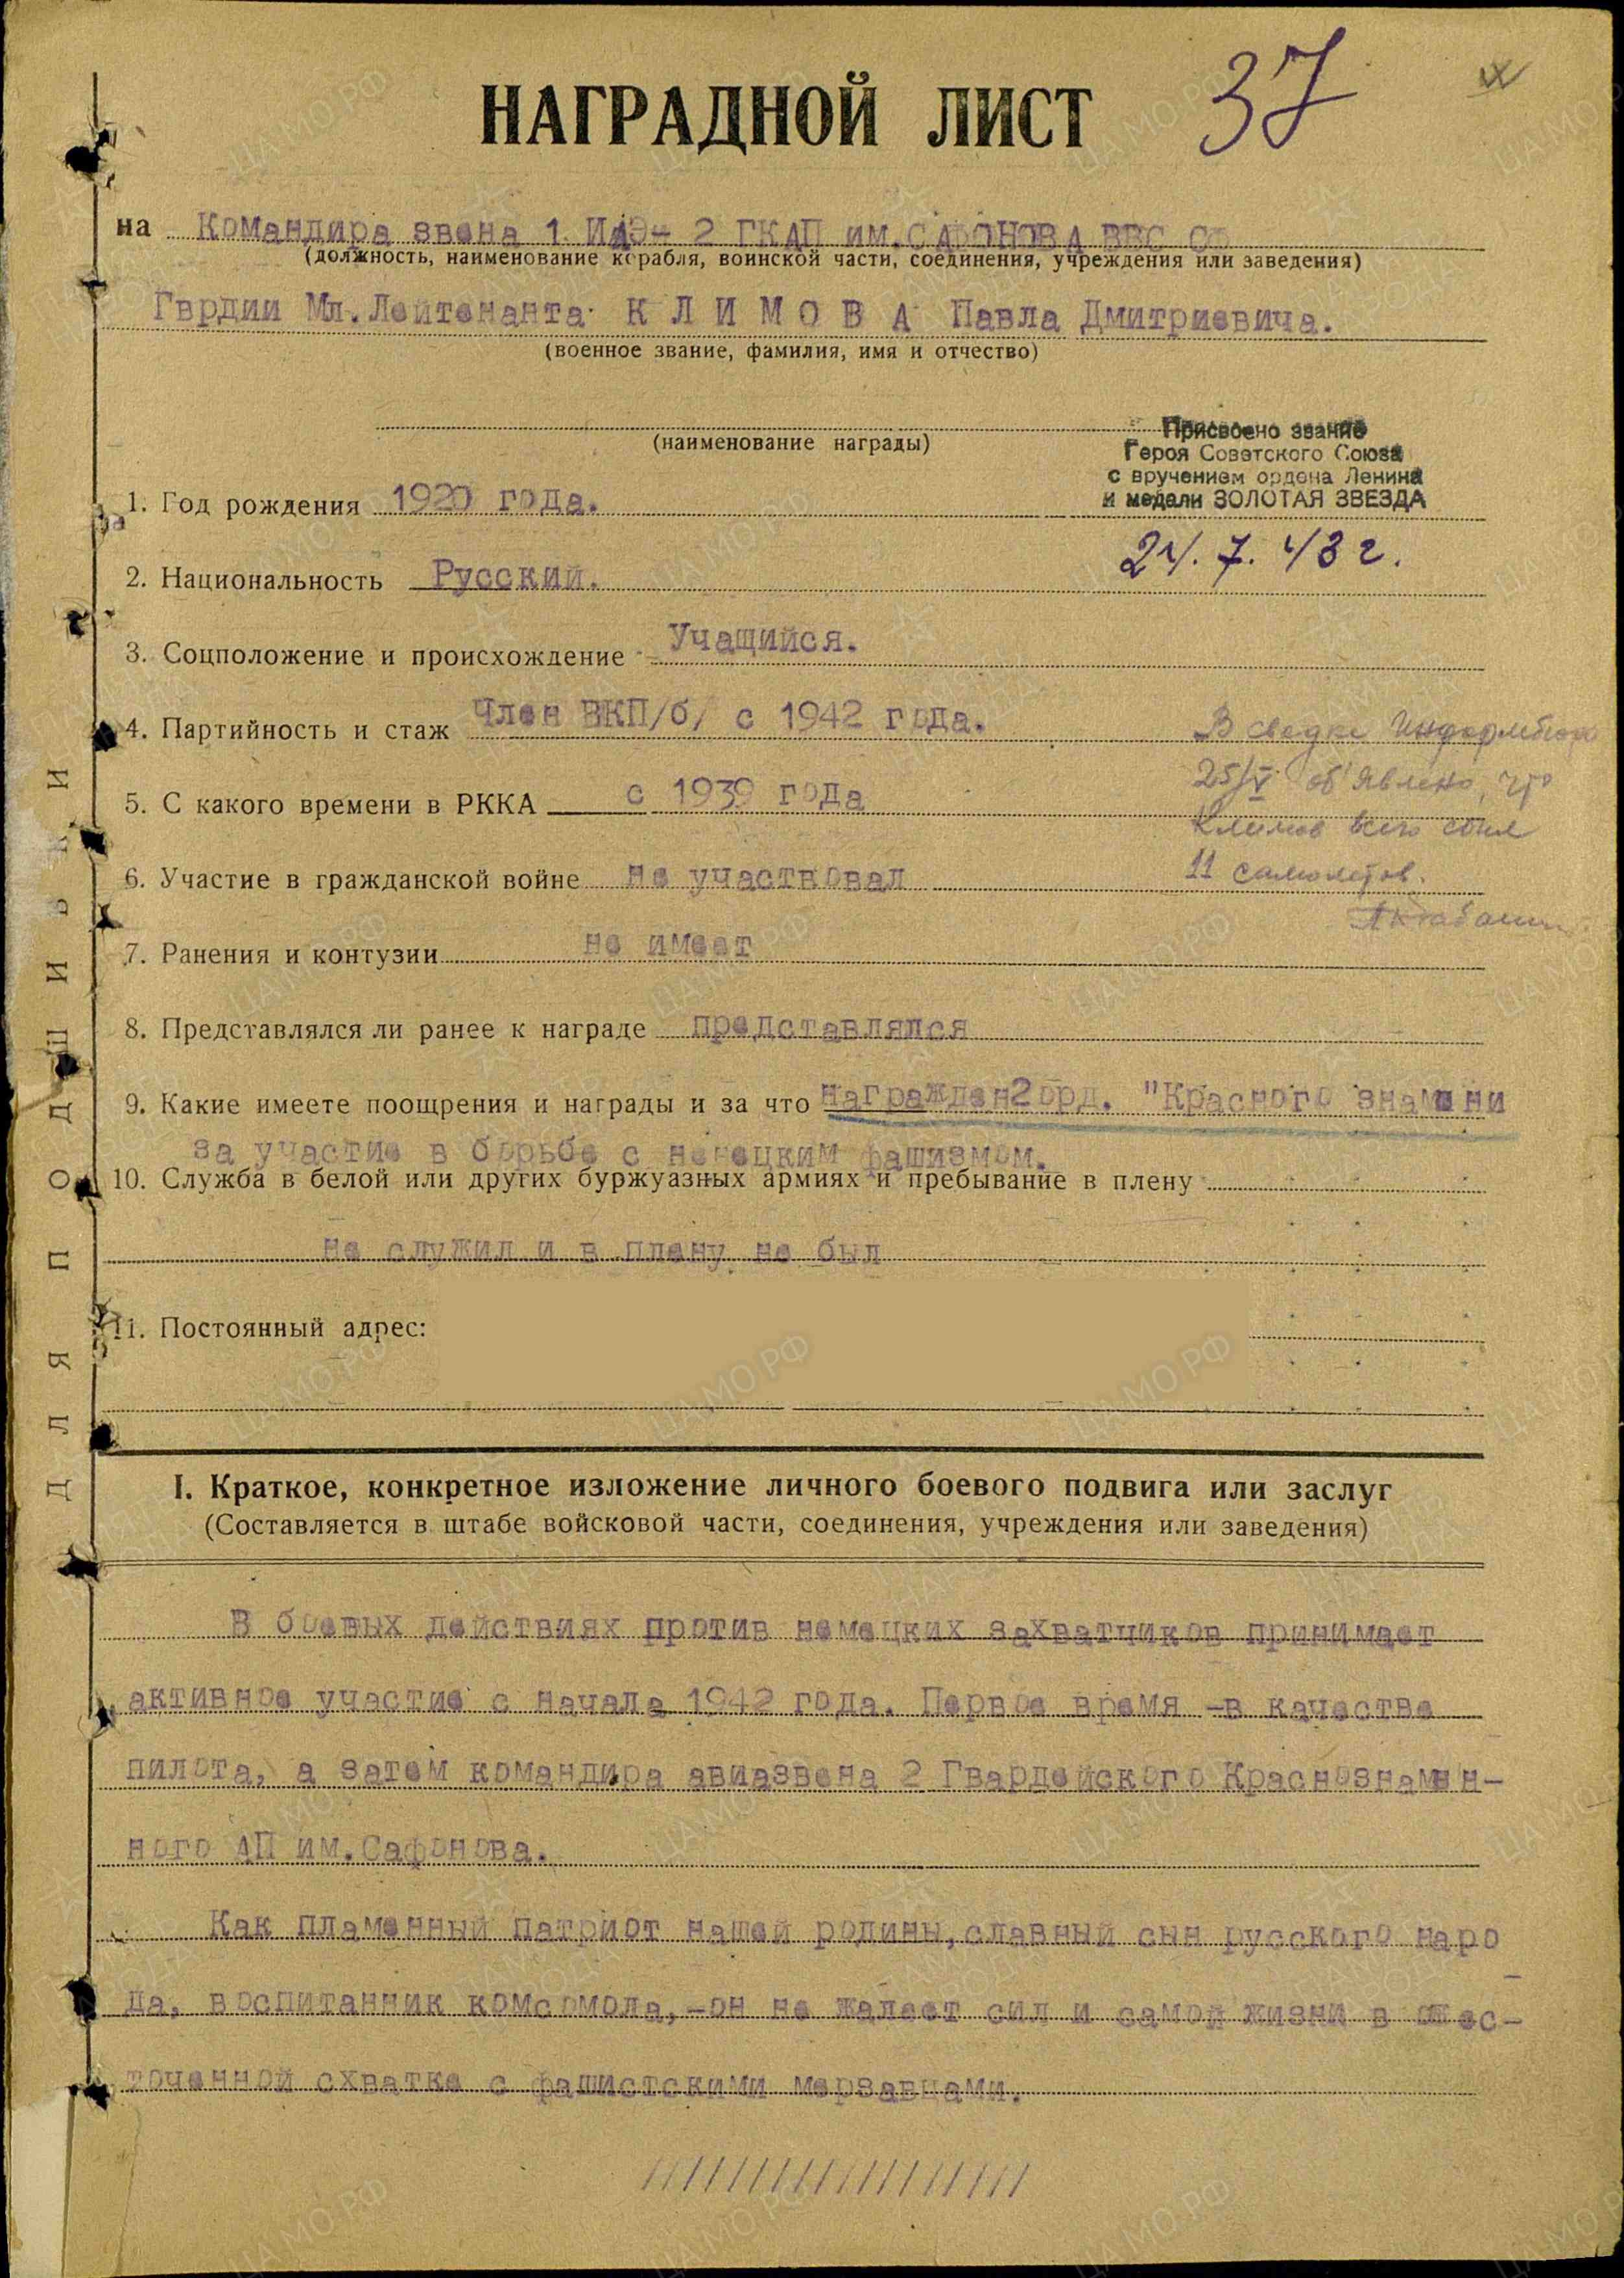 НАГРАДНОЙ ЛИСТ 37
на Командира звена 1 ИАЭ- 2 ГКАП им.САФОНОВА ВВС СФ
(должность, наименование корабля, воинской части, соединения, учреждения или заведения)
Гврдии Мл.Лейтенанта К Л И М О В А Павла Дмитриевича.
(военное звание, фамилия, имя и отчество)
(наименование награды)
Присвоено звание
Героя Советского Союза
с вручением ордена Ленина
и медали ЗОЛОТАЯ ЗВЕЗДА
24.7.43 г.
1. Год рождения 1920 года.
2. Национальность Русский.
3. Соцположение и происхождение Учащийся.
4. Партийность и стаж Член ВКП/б/ с 1942 года.
В сводке Информбюро
25/V об'явлено, что
Климов всего сбил
11 самолетов.
5. С какого времени в РККА с 1939 года
6. Участие в гражданской войне не участвовал
7. Ранения и контузии не имеет
8. Представлялся ли ранее к награде представлялся
9. Какие имеете поощрения и награды и за что награжден 2 орд. "Красного знамени
за участие в борьбе с немецким фашизмом.
10. Служба в белой или других буржуазных армиях и пребывание в плену
не служил и в плену не был
11. Постоянный адрес:
ДЛЯ ПОДШИВКИ
I. Краткое, конкретное изложение личного боевого подвига или заслуг
(Составляется в штабе войсковой части, соединения, учреждения или заведения)
В боевых действиях против немецких захватчиков принимает
активное участие с начала 1942 года. Первое время -в качестве
пилота, а затем командира авиазвена 2 Гвардейского Краснознамен-
ного АП им.Сафонова.
Как пламенный патриот нашей родины,славный сын русского наро
-
да, воспитанник комсомола,-он не жалеет сил и самой жизни в ожес-
точенной схватке с фашистскими мерзавцами.
/////////////////
ЦАМО.РФ